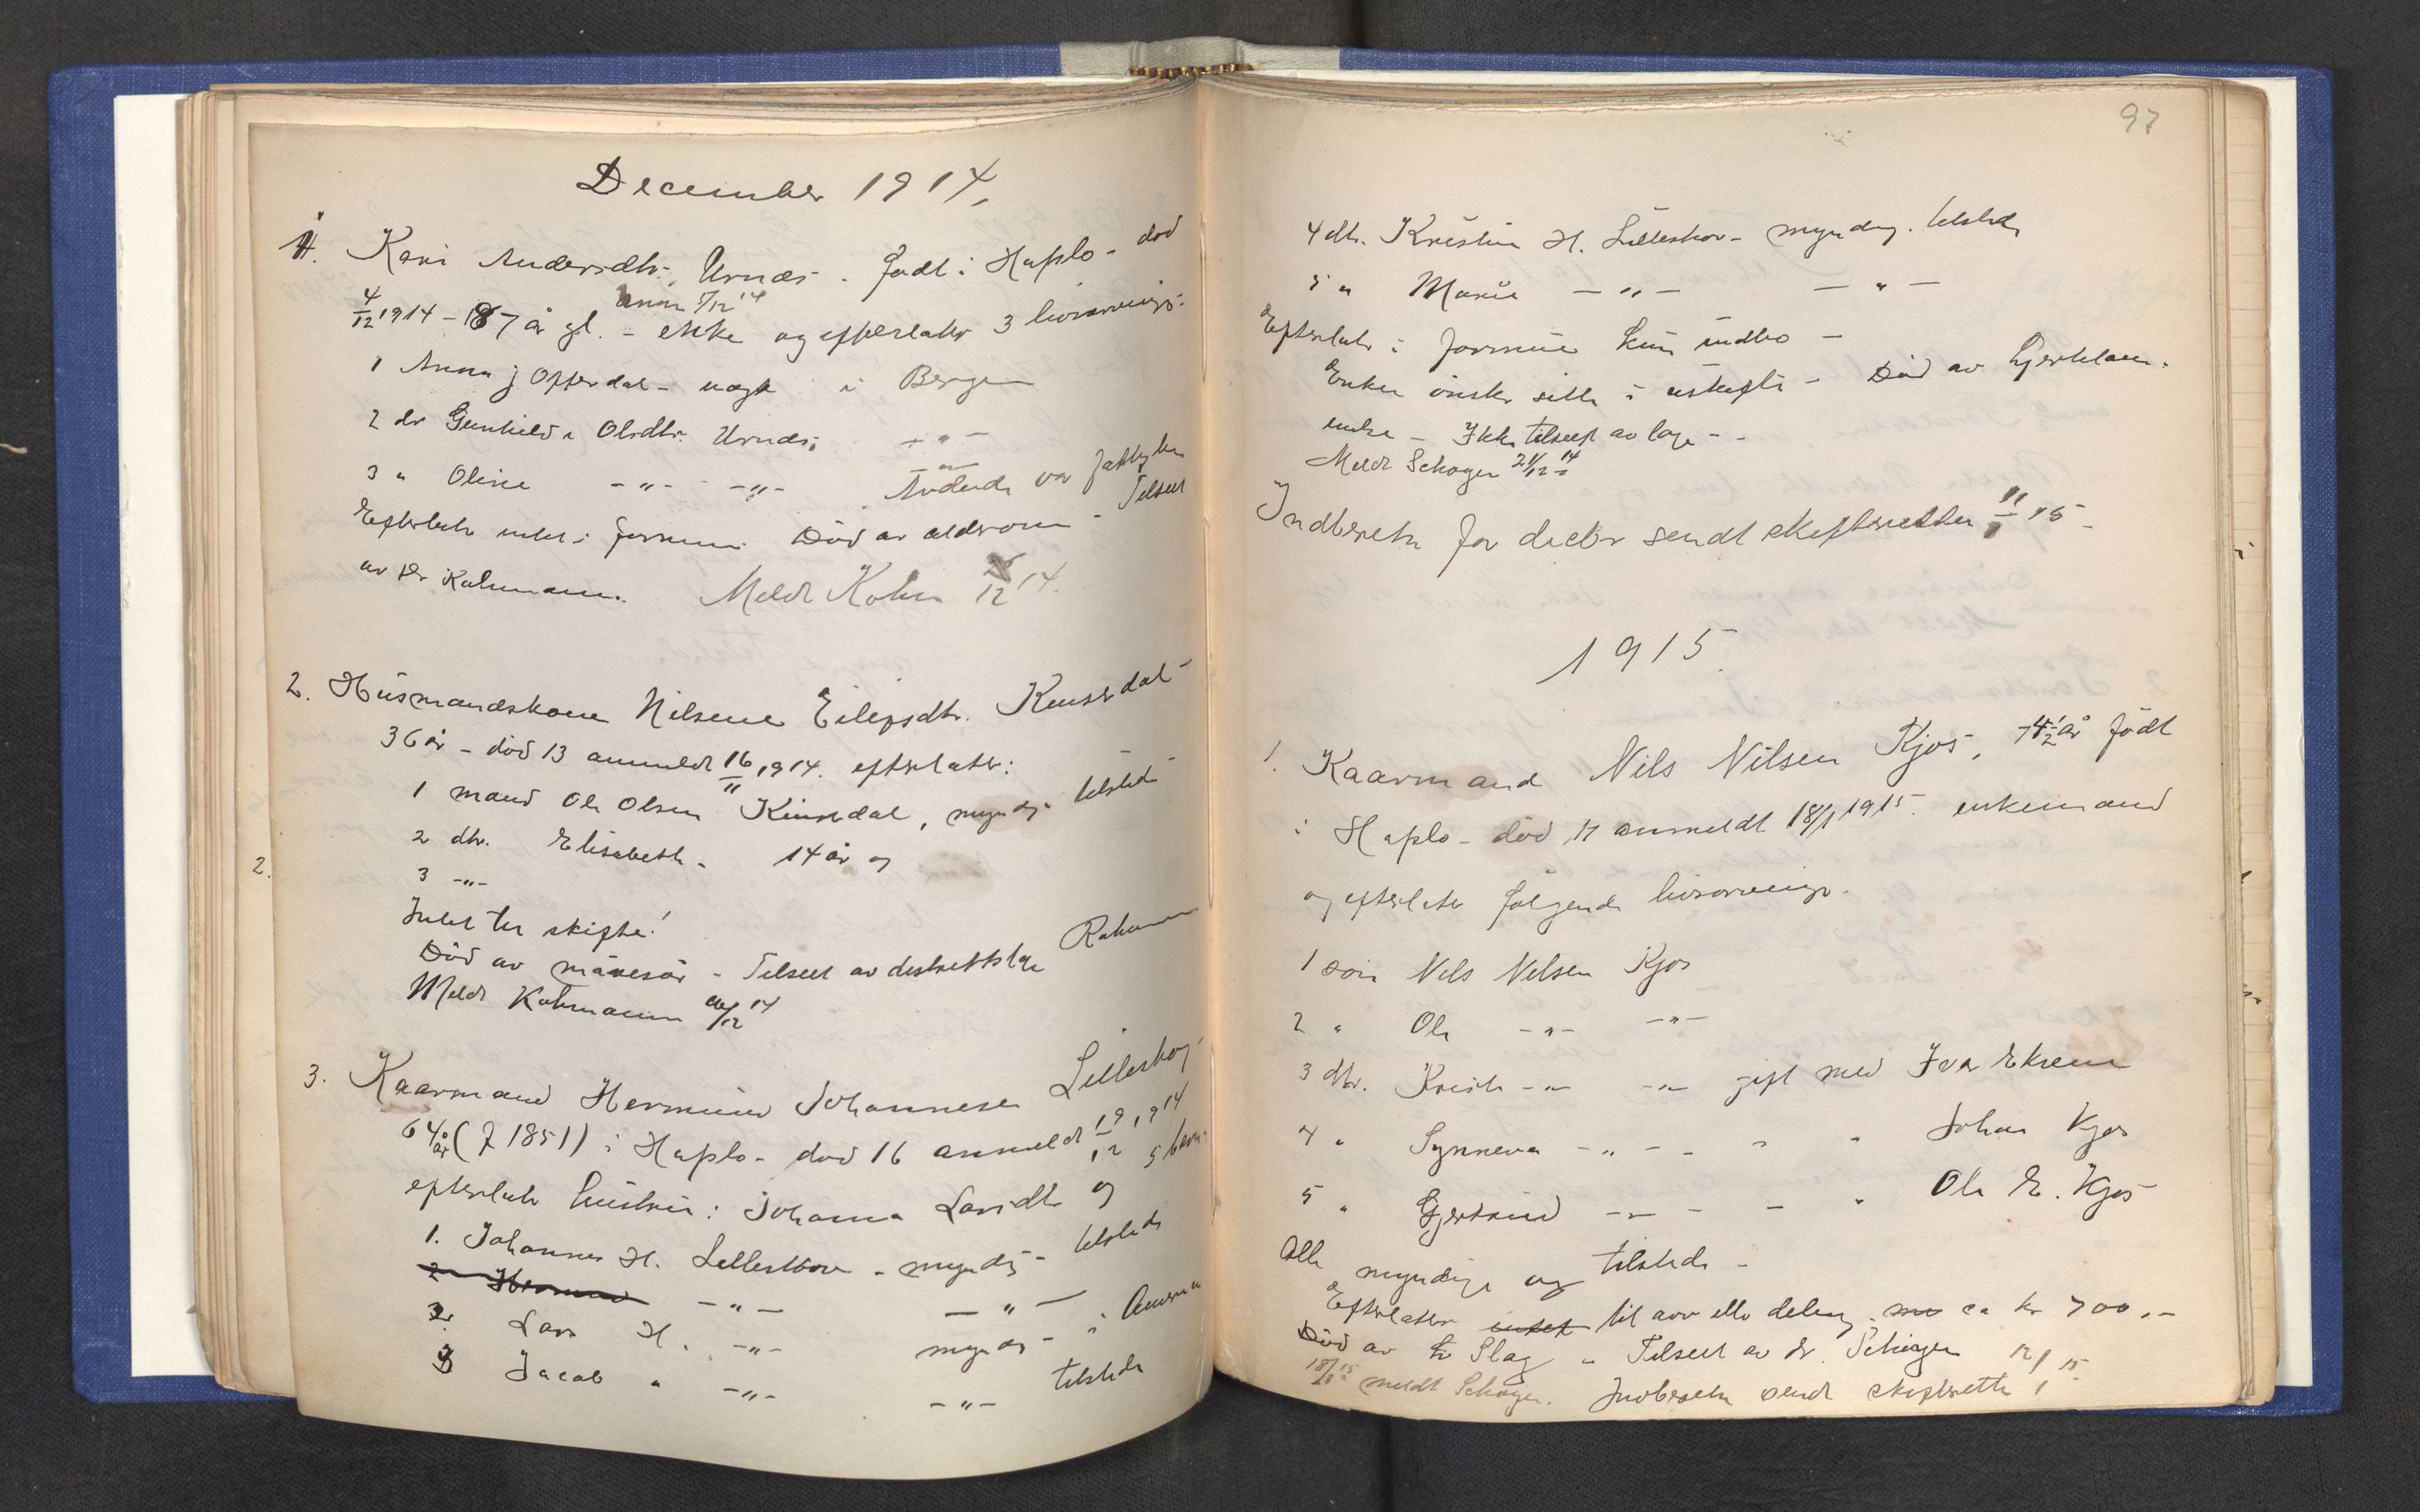 December 1914,
1. Kari Andersdtr. Urnes - født i Hafslo - död
4/12 1914 - 87 år gl. - enke og efterlater 3 livsarvinge:
anm 5/12 14
1 Anna J Offerdal - ugift i Bergen
2 dr Gunhild Olsdtr. Urnes
3 " Oline -"- -"- -"-
Efterlate intet i formue. Död av alderdom - Tilseet
av dr Kahrmann. Meldt Kahr 12 14.
2. Husmandskone Nilsine Eilifsdtr. Kinserdal -
36 år - död 13 anmeldt 16/11 1914. efterlater:
1 mand Ole Olsen Kinserdal, myndig tilstede
2 dtr. Elisabeth - 14 år og
3 -"-
2.
Intet til skifte!
Död av - Tilseet av distriktslæge Kahrmann
Meldt Kahrmann /12 14
3. Kaarmand Hermund Johannesen Lilleskog -
64 år (f 1851) i Hafslo - död 16 anmeldt 19/12 1914
efterlate hustru: Johanna Larsdtr og 5 barn
1. Johannes H. Lilleskov - myndig - tilstede
2 Hermund -"- -"-
2. Lars H. -"- myndig - i Amerika
3 Jacob " -"- -"- tilstede
97
4 dtr. Kristine H. Lilleskov - myndig. tilstede
5 " Marie -"- -"-
Efterlate i formue kun indbo -
Enken ønsker sitte i uskifte - Död av hjertelam-
melse - Ikke tilseet av læge -
Meldt Schøyen 21/12 14
Indberetn for decbr sendt skifteretten 15 -
1915.
1. Kaarmand Nils Nilsen Kjos, 74 1/2 år født
i Hafslo - död 17 anmeldt 18/1 1915. enkemand
og efterlater følgende livsarvinge.
1 søn Nils Nilsen Kjos
2 " Ole -"- -"-
3 dtr. Kristi -"- -"- gift med Ivar Eksem
4 " Synneva -"- - " " Johan Kjos
5 " Gjertrud -"- - - " Ole E. Kjos
Alle myndige og tilstede -
Efterlater intet til arv eller deling. ca kr 700.-
Död av Slag - Tilseet av dr. Schøyen
18/1 15 meldt Schøyen. Indberetn sendt skifterette